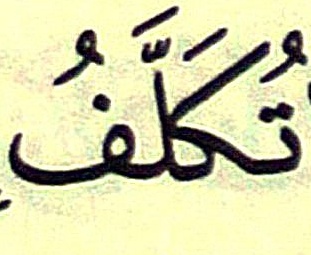 تُكَلَّفُ